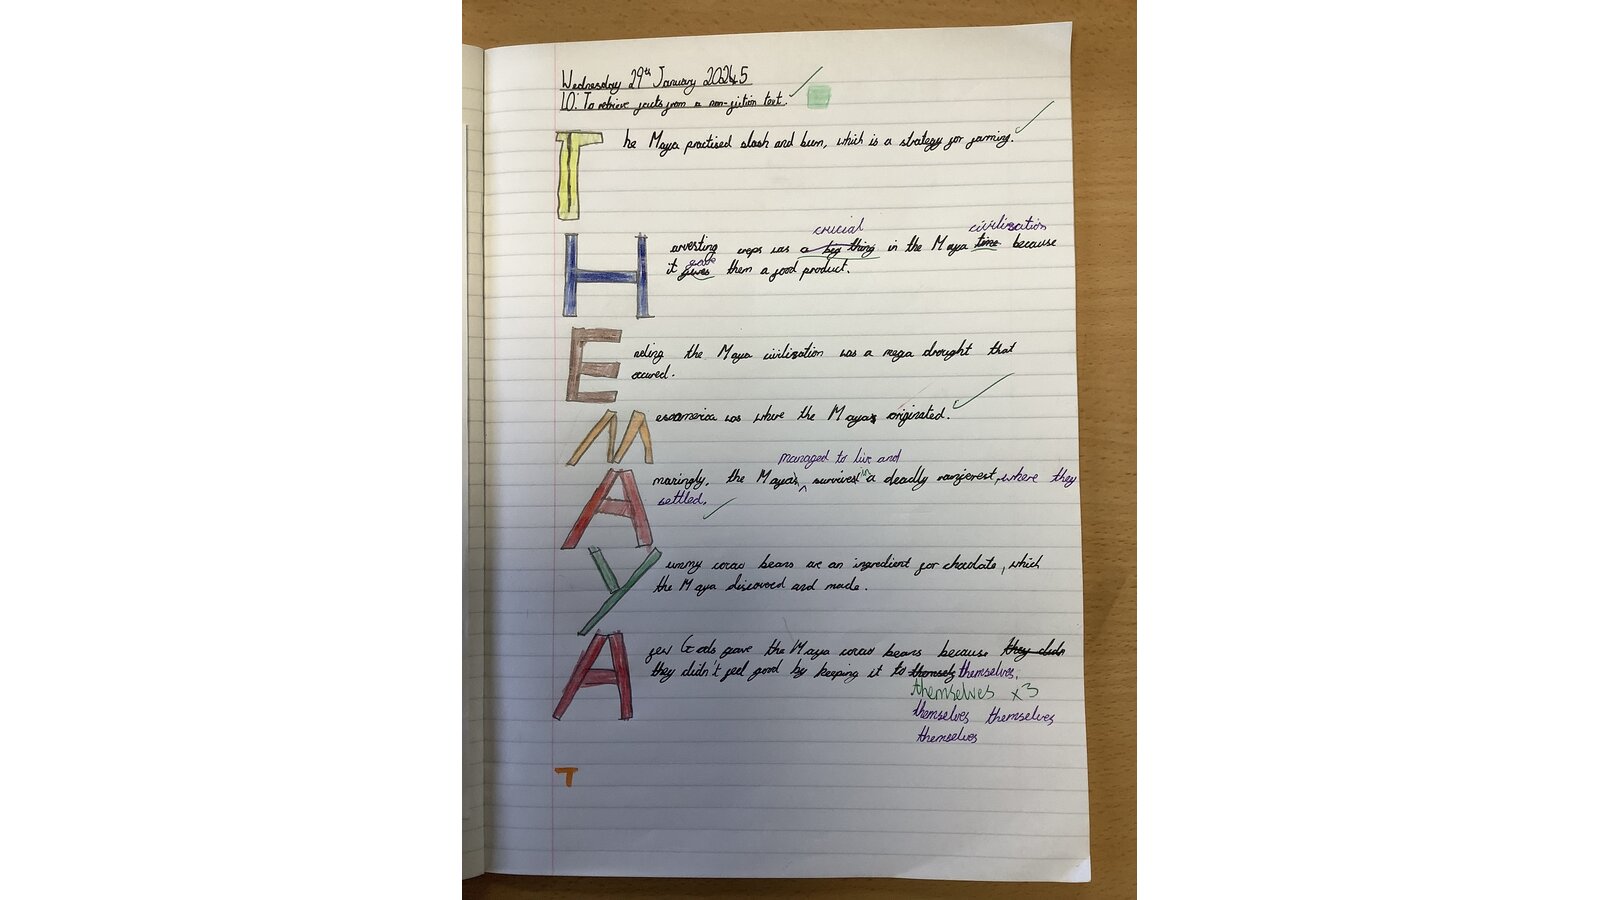 Wednesday 29th January 2025
LO: To retrieve facts from a non-fiction text.
The Maya practised slash and burn, which is a strategy for farming.
crucial civilization
Harvesting crops was a big thing in the Maya time because
gave
it gives them a good product.
Ending the Maya civilization was a mega drought that
occured.
Mesoamerica was where the Maya originated.
managed to live and
Amazingly, the Maya survived in a deadly rainforest, where they
settled.
Yummy cacao beans are an ingredient for chocolate, which
the Maya discoverd and made.
A few Gods gave the Maya cacao beans because they didn
they didn't feel good by keeping it to themsely themselves.
themselves x3
themselves themselves
themselves
T